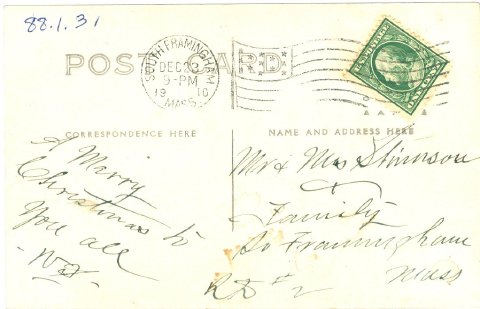 88.1.31
POST CARD
SOUTH FRAMINGHAM
DEC 23
9-PM
1910
MASS.
CORRESPONDENCE HERE
NAME AND ADDRESS HERE
A Merry
Christmas to
You all
Mr & Mrs Stimson
&
Family
So Framingham
Mass
RD #2